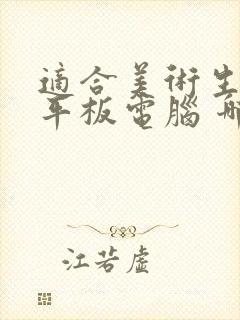 適合美術生
平板電腦
江若虛